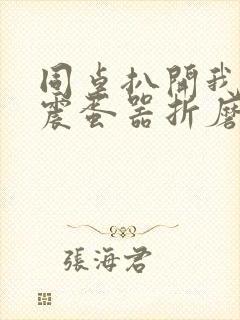 同桌扒開我
震蛋器折磨
張海君